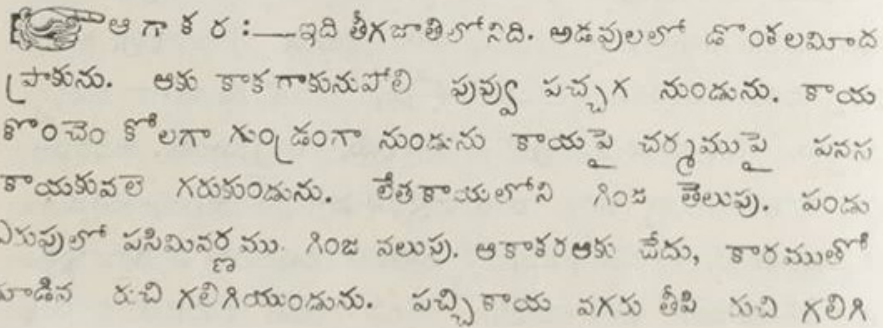 ఆ గా క ర :—ఇది తీగజాతిలోనిది. అడవులలో డొంకలమీద
ప్రాకును. ఆకు కాకగాకునుపోలి పువ్వు పచ్చగ నుండును. కాయ
కొంచెం కోలగా గుండ్రంగా నుండును కాయపై చర్మముపై పనస
కాయకువలె గరుకుండును. లేతకాయలోని గింజ తెలుపు. పండు
ఎరుపులో పసిమివర్ణము. గింజ నలుపు. ఆకాకరఆకు చేదు, కారముతో
కూడిన రుచి గలిగియుండును. పచ్చికాయ వగరు తీపి రుచి గలిగి